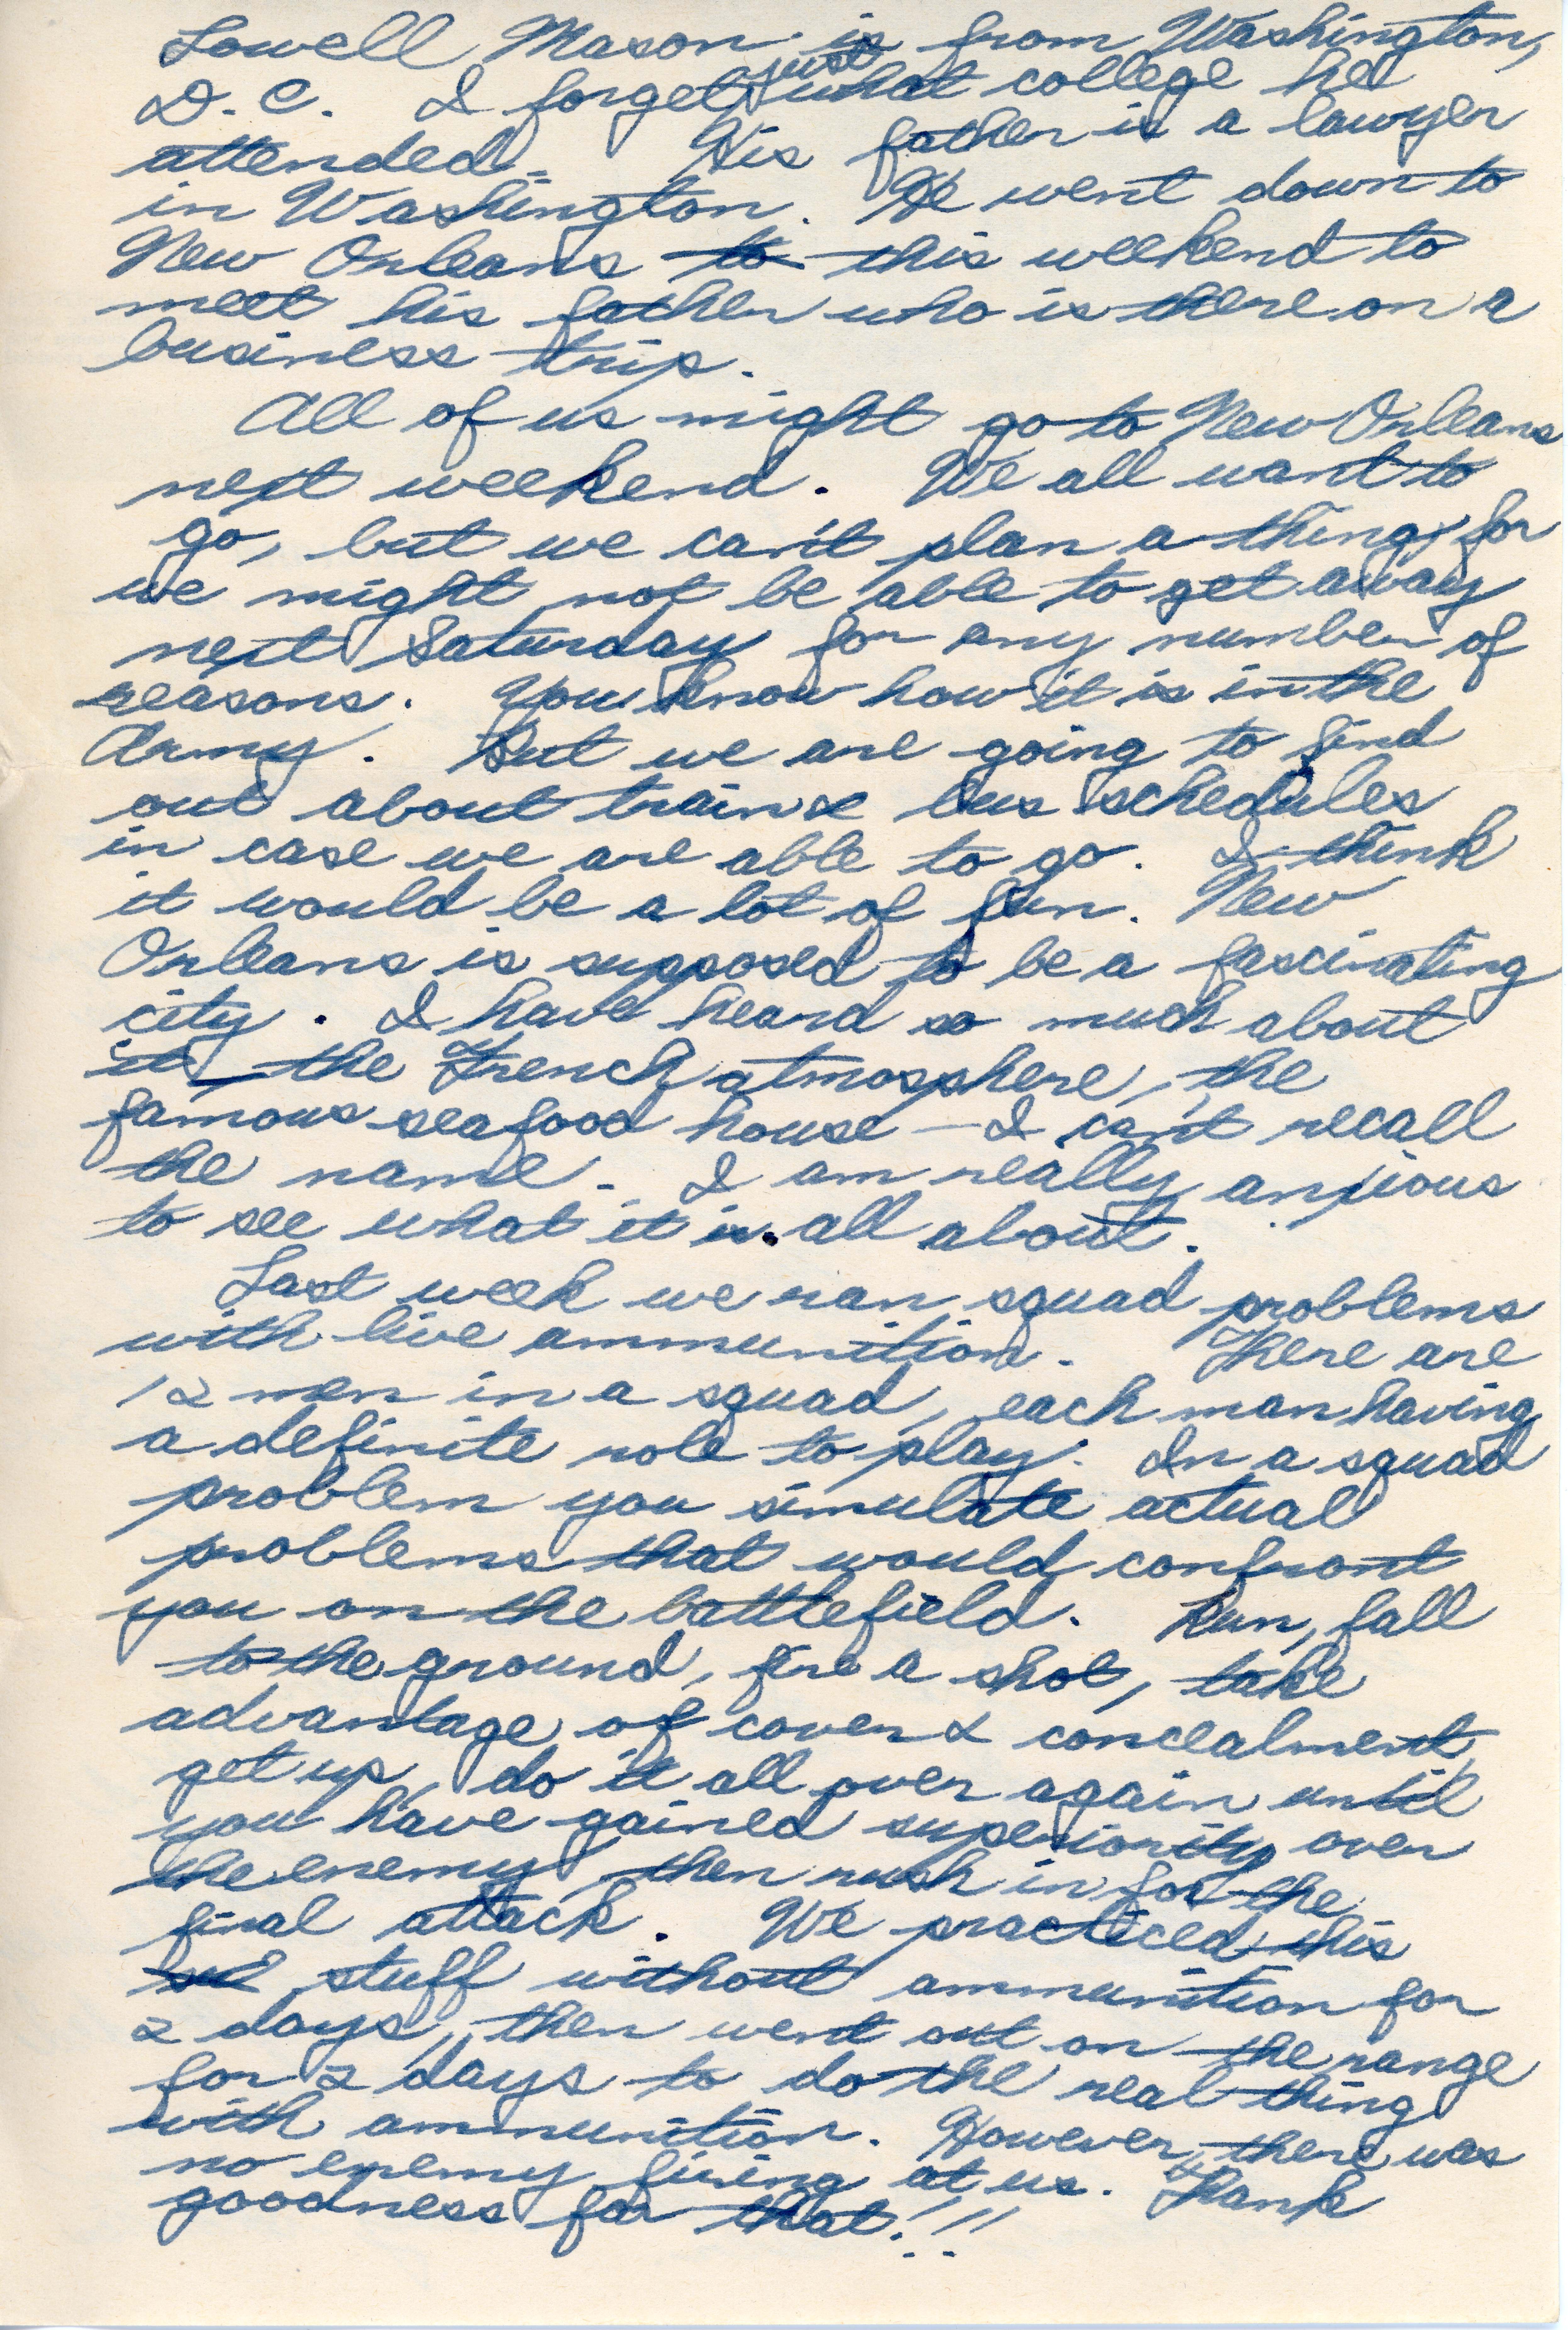 Lowell Mason is from Washington,
D.C. I forget just what college he
attended. His father is a lawyer
in Washington. He went down to
New Orleans to this weekend to
meet his father who is there on a
business trip.
All of us might go to New Orleans
next weekend. We all want to
go, but we can't plan a thing, for
we might not be able to get away
next Saturday for any number of
reasons. You know how it is in the
Army. But we are going to find
out about train & bus schedules
in case we are able to go. I think
it would be a lot of fun. New
Orleans is supposed to be a fascinating
city. I have heard so much about
it, the French atmosphere, the
famous seafood house — I can't recall
the name. I am really anxious
to see what it is all about.
Last week we ran squad problems
with live ammunition. There are
12 men in a squad, each man having
a definite role to play. In a squad
problem you simulate actual
problems that would confront
you on the battlefield. Run, fall
to the ground, fire a shot, take
advantage of cover & concealment,
get up, do it all over again until
you have gained superiority over
the enemy, then rush in for the
final attack. We practiced this
stuff without ammunition for
2 days, then went out on the range
for 2 days to do the real thing
with ammunition. However, there was
no enemy firing at us. Thank
goodness for that!!!